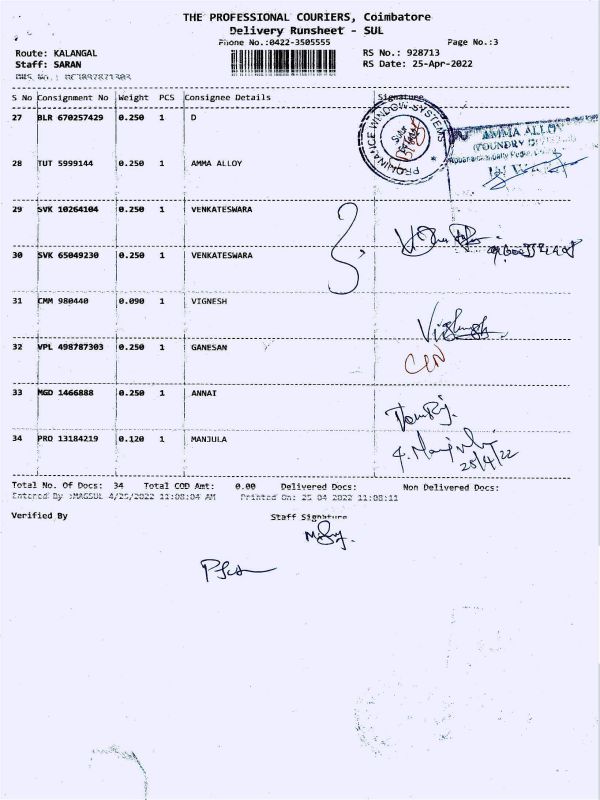 THE PROFESSIONAL COURIERS, Coimbatore
Delivery Runsheet - SUL
Phone No.:0422-3505555
Page No.:3
Route: KALANGAL
RS No.: 928713
Staff: SARAN
RS Date: 25-Apr-2022
S No Consignment No Weight PCS Consignee Details Signature
27 BLR 670257429 0.250 1 D
PROMINANCE WINDOW SYSTEMS
AMMA ALLOY
28 TUT 5999144 0.250 1 AMMA ALLOY
29 SVK 10264104 0.250 1 VENKATESWARA
30 SVK 65049230 0.250 1 VENKATESWARA
31 CMM 980440 0.090 1 VIGNESH
Vignesh
32 VPL 498787303 0.250 1 GANESAN
33 MGD 1466888 0.250 1 ANNAI
34 PRO 13184219 0.120 1 MANJULA
25/4/22
Total No. Of Docs: 34 Total COD Amt: 0.00 Delivered Docs: Non Delivered Docs:
Entered By :MAGSUL 4/25/2022 11:08:04 AM Printed On: 25 04 2022 11:08:11
Verified By Staff Signature